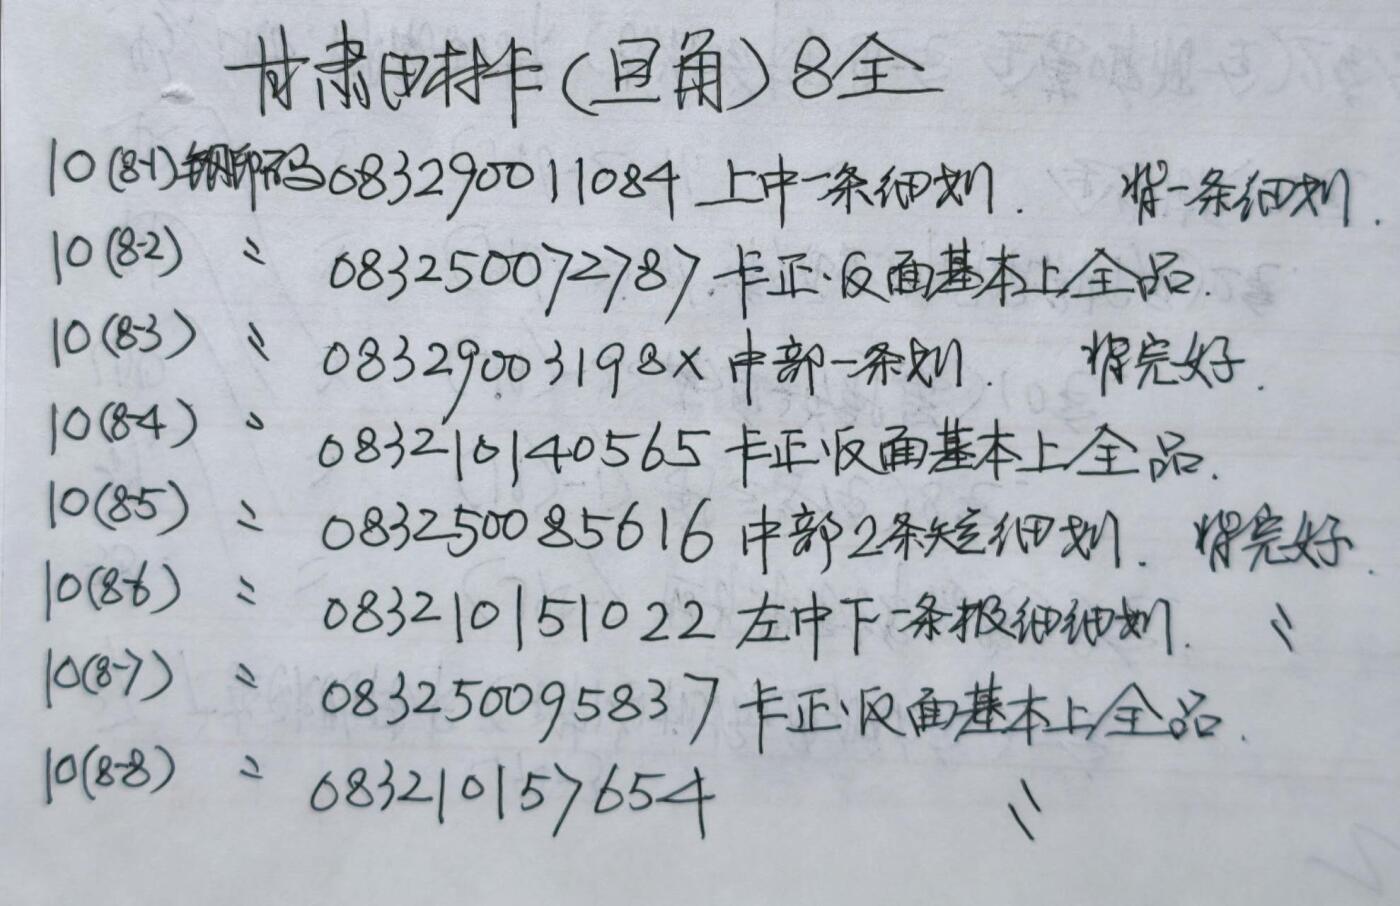 甘肃田村卡(旦角)8全
10(8-1)钢印码0832900011084上中一条细划. 背一条细划.
10(8-2) 〃 0832500072787卡正.反面基本上全品.
10(8-3) 〃 083290003198X中部一条划. 背完好.
10(8-4) 〃 083210140565卡正.反面基本上全品.
10(8-5) 〃 083250085616中部2条短细划. 背完好.
10(8-6) 〃 083210151022左中下一条极细细划. 〃
10(8-7) 〃 083250095837卡正.反面基本上全品.
10(8-8) 〃 083210157654 〃